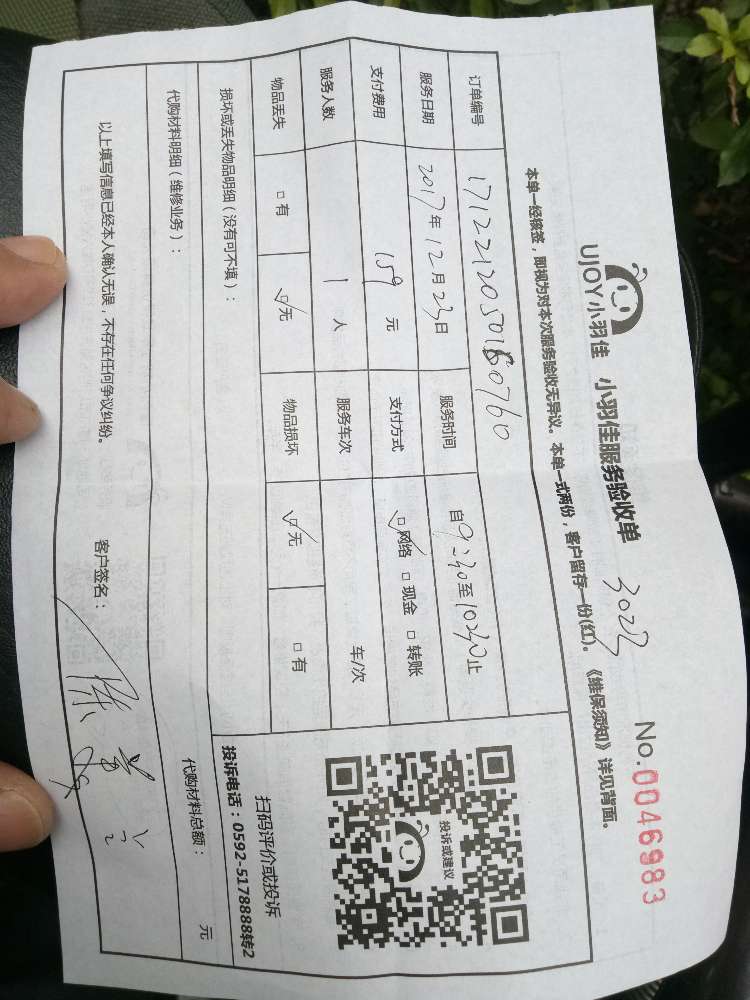 UJOY小羽佳 小羽佳服务验收单 No.0046983
本单一经核签,即视为对本次服务验收无异议。本单一式两份,客户留存一份(红)。《维保须知》详见背面。
订单编号
服务日期 2017年12月23日 服务时间 自9:30至10:30止
支付费用 159元 支付方式 网络 现金 转账
服务人数 1人 服务车次 车/次
物品丢失 有 无 物品损坏 无 有
损坏或丢失物品明细(没有可不填):
代购材料明细(维修业务): 代购材料总额: 元
以上填写信息已经本人确认无误,不存在任何争议纠纷。 客户签名:
投诉或建议
扫码评价或投诉
投诉电话:0592-5178888转2